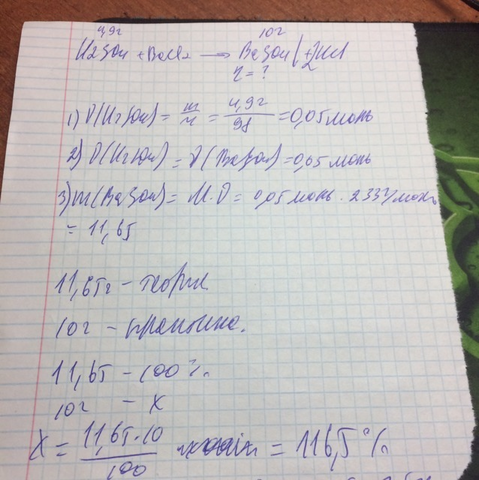 4,9г 10г
H2SO4 + BaCl2 → BaSO4↓ + 2HCl
η = ?
1) ν(H2SO4) = m/M = 4,9г/98 = 0,05 моль
2) ν(H2SO4) = ν(BaSO4) = 0,05 моль
3) m(BaSO4) = M·ν = 0,05 моль · 233 г/моль
= 11,65
11,65г – теория
10г – практика.
11,65 – 100%
10г – X
X = 11,65·10/100 = 116,5%